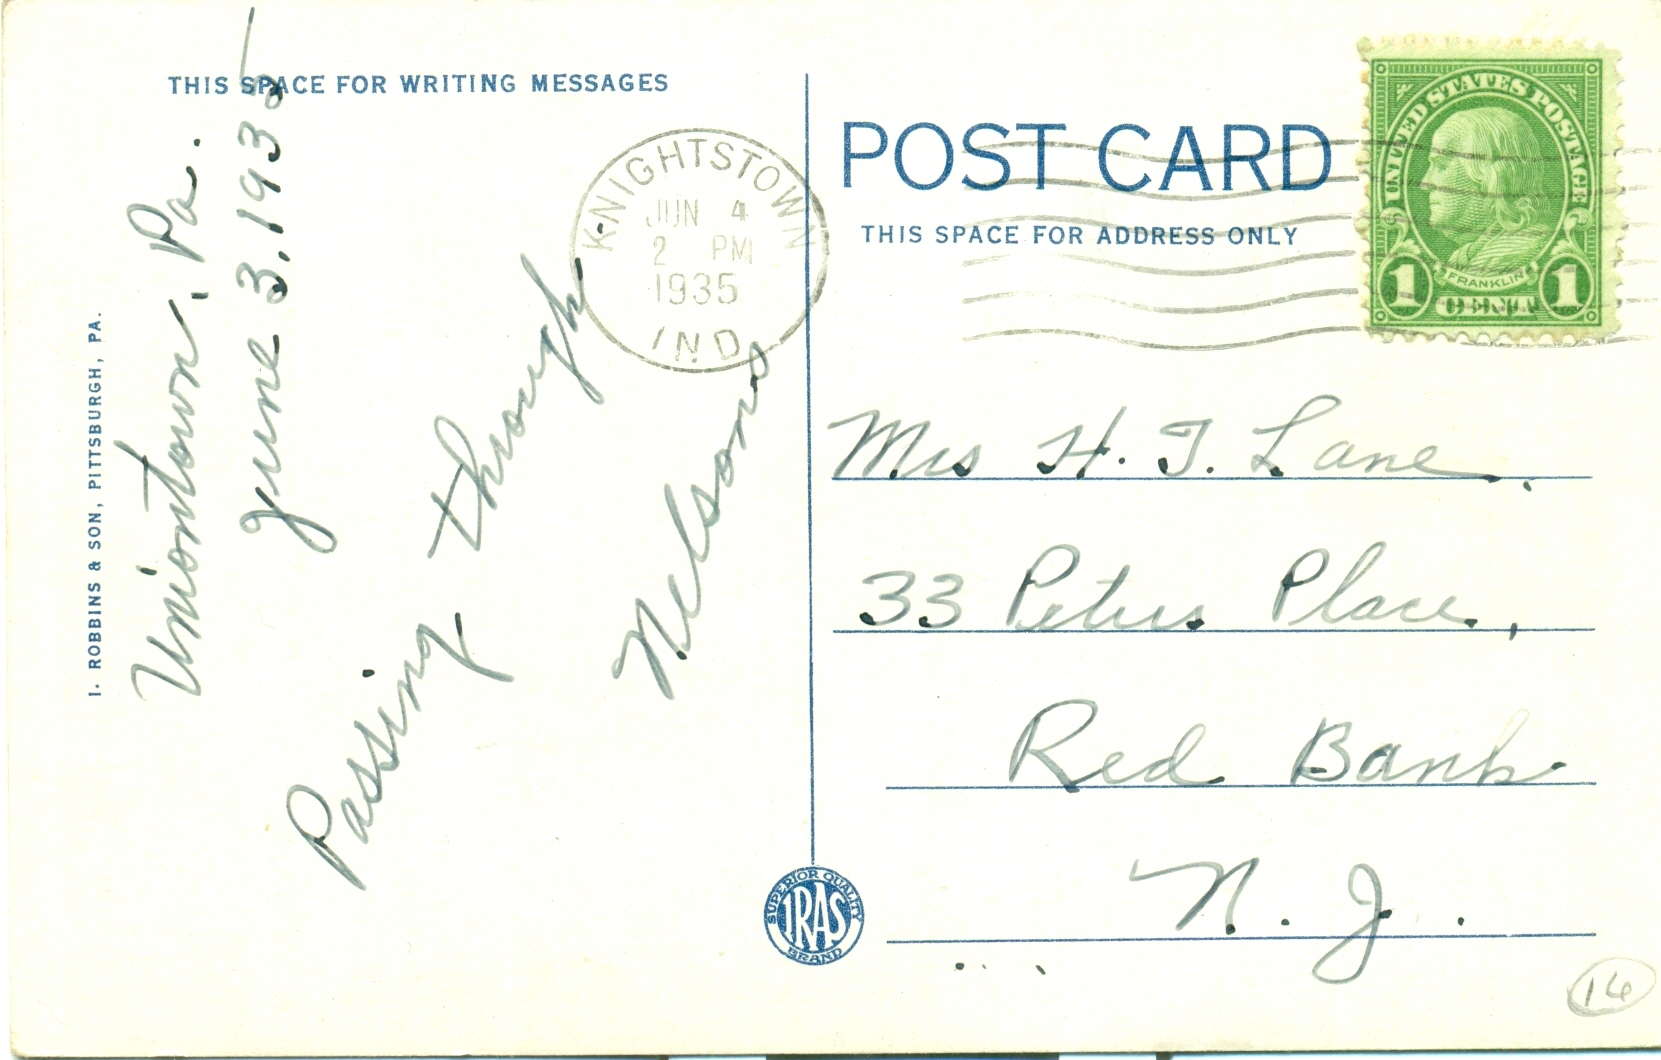 THIS SPACE FOR WRITING MESSAGES
Uniontown, Pa.
June 3, 1935
Passing through
Nelsons
I. ROBBINS & SON, PITTSBURGH, PA.
KNIGHTSTOWN
JUN 4
2 PM
1935
IND
POST CARD
THIS SPACE FOR ADDRESS ONLY
UNITED STATES POSTAGE
FRANKLIN
1 1
Mrs H. T. Lane.
33 Peters Place,
Red Bank
N. J.
SUPERIOR QUALITY
IRAS
BRAND
14